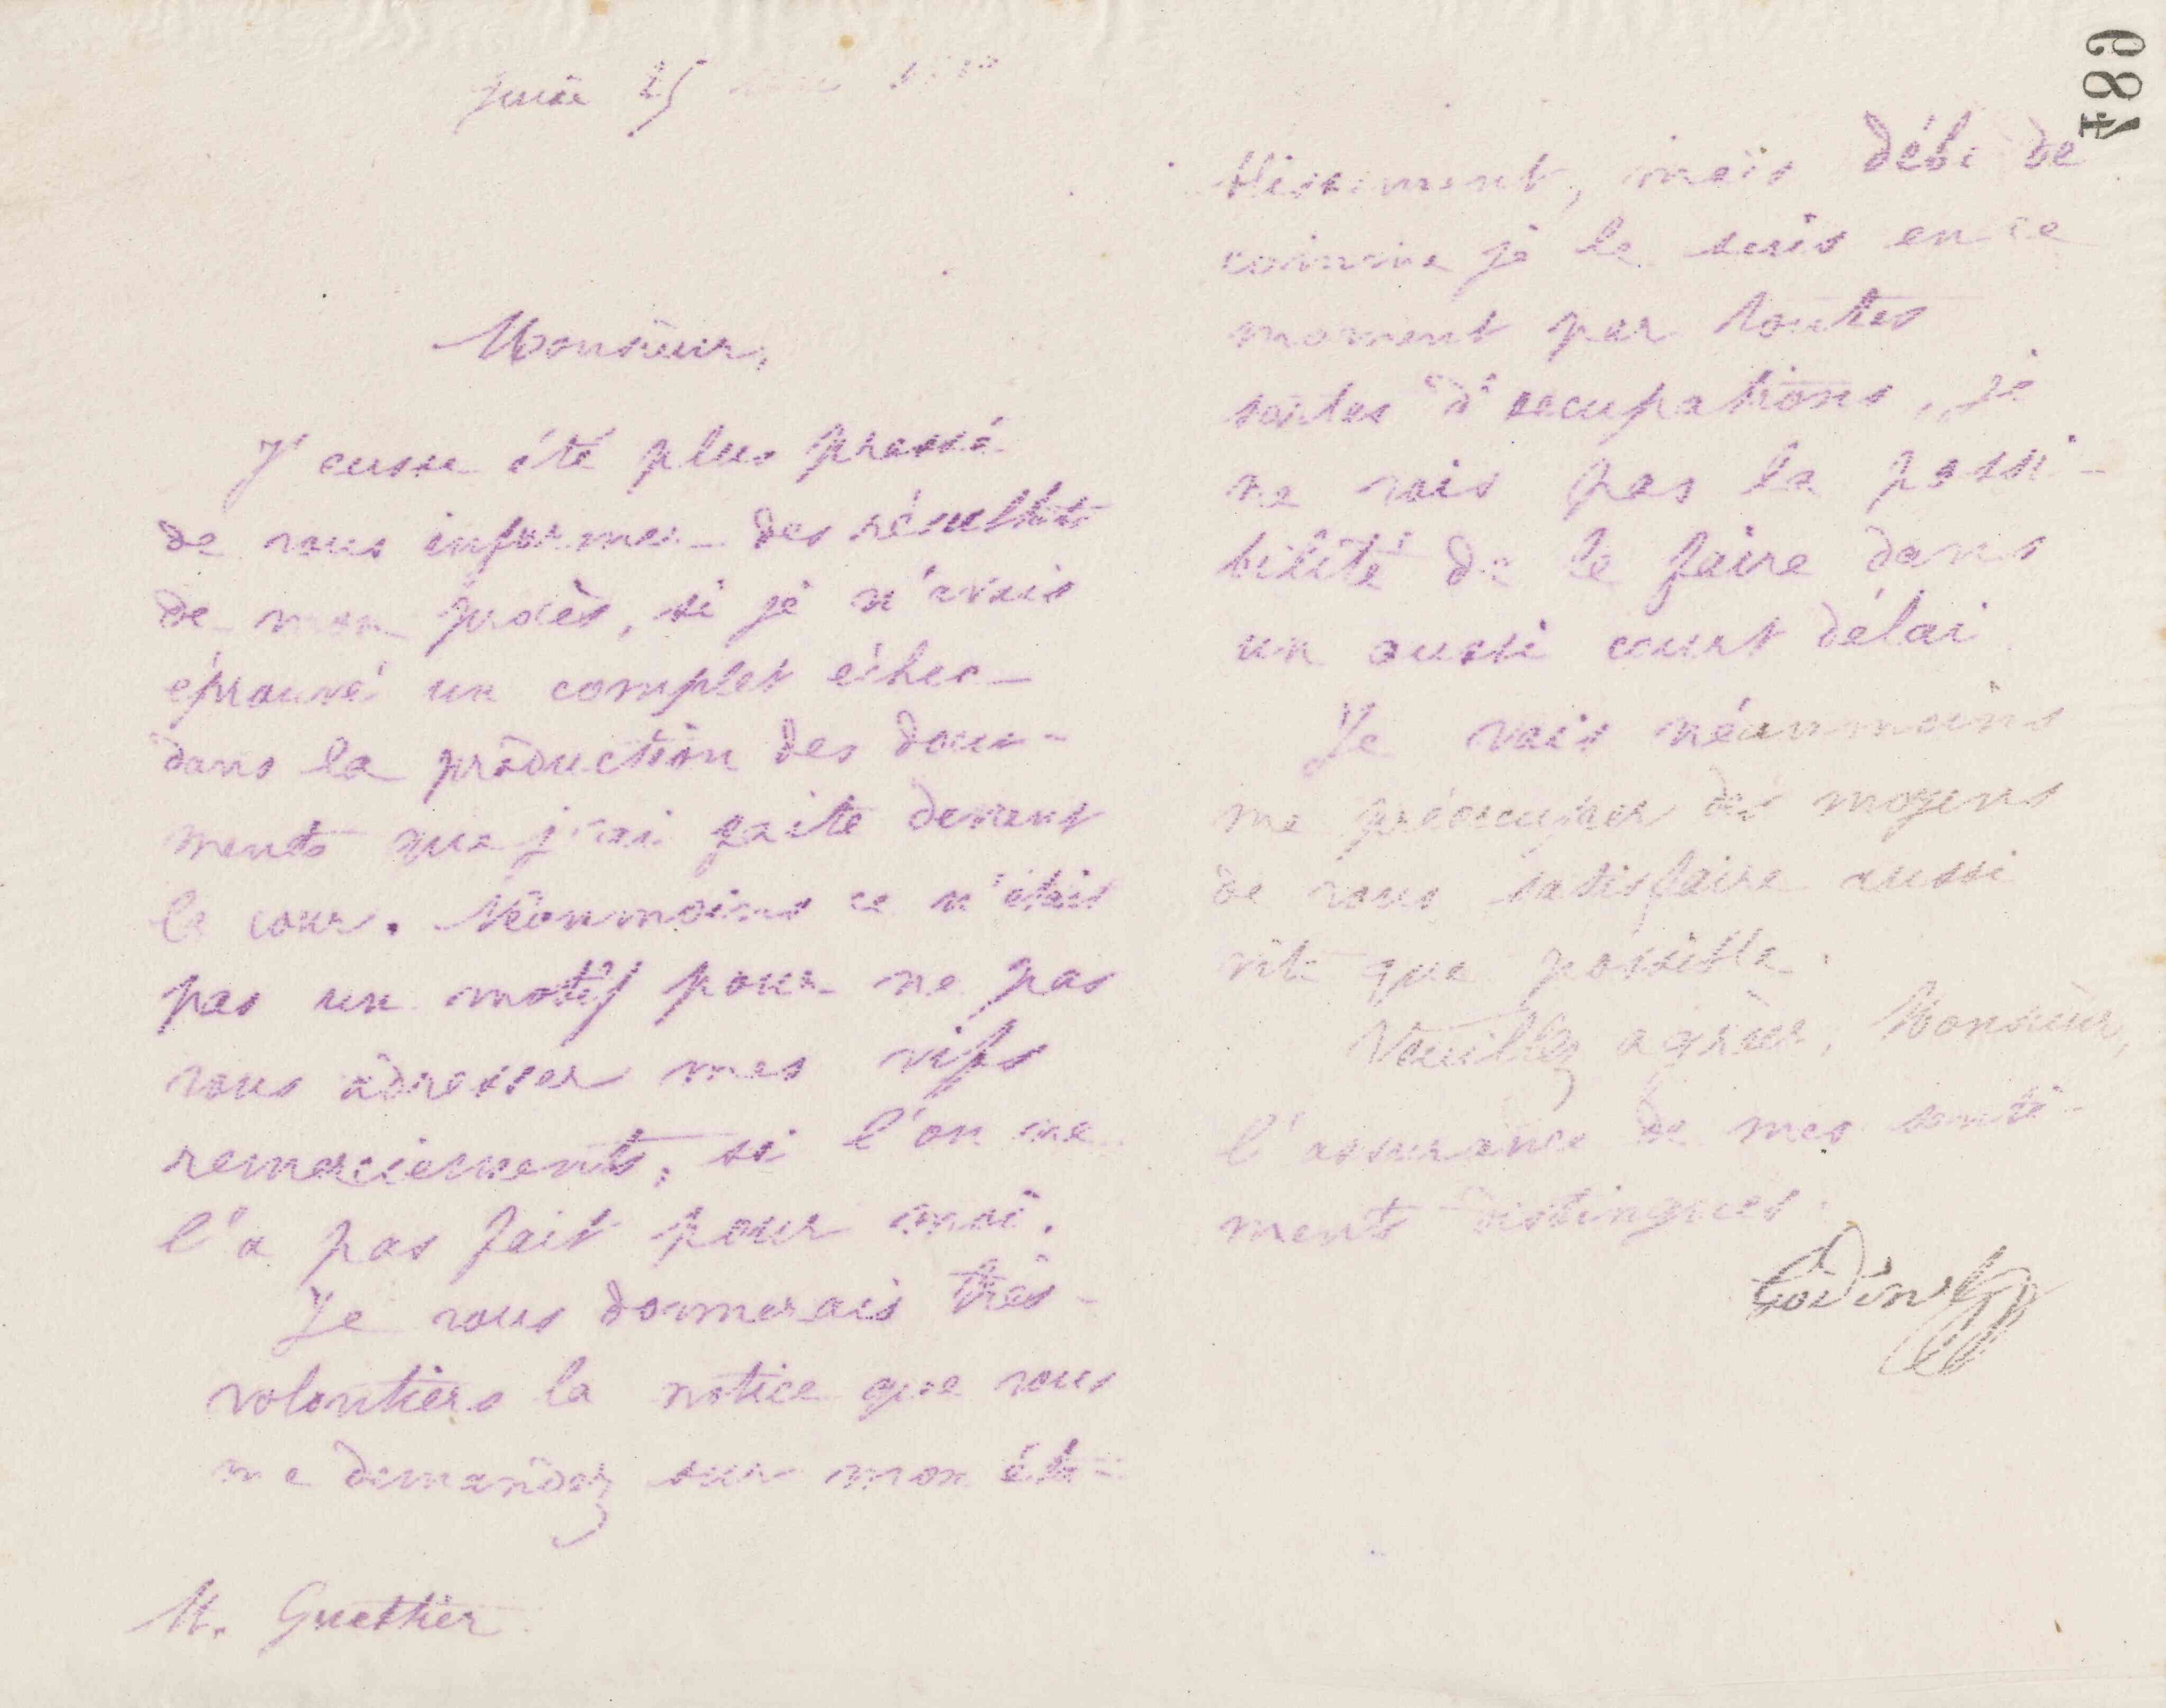 Guise 25
Monsieur,
J'eusse été plus pressé
de vous informer des résultats
de mon procès, si je n'avais
éprouvé un complet échec
dans la production des docu-
ments que j'ai faite devant
la cour. Néanmoins ce n'était
pas un motif pour ne pas
vous adresser mes vifs
remerciements, si l'on ne
l'a pas fait pour moi.
Je vous donnerais très-
volontiers la notice que vous
me demandez sur mon éta-
M. Guettier
789
blissement, mais débordé
comme je le suis en ce
moment par toutes
sortes d'occupations, je
ne vois pas la possi-
bilité de le faire dans
un aussi court délai
Je vais néanmoins
me préoccuper des moyens
de vous satisfaire aussi
vite que possible.
Veuillez agréer, Monsieur,
l'assurance de mes senti-
ments distingués.
Godin